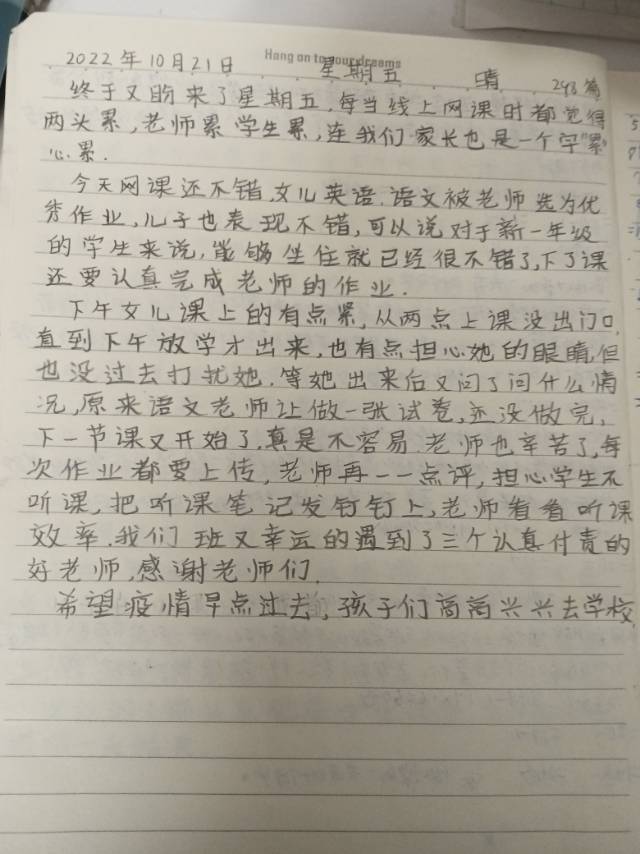 Hang on to your dreams
2022年10月21日 星期五 晴 298篇
终于又盼来了星期五,每当线上网课时都觉得
两头累,老师累学生累,连我们家长也是一个字"累"
心累.
今天网课还不错,文儿英语.语文被老师选为优
秀作业,儿子也表现不错,可以说对于新一年级
的学生来说,能够坐住就已经很不错了,下了课
还要认真完成老师的作业.
下午女儿课上的有点紧,从两点上课没出门口,
直到下午放学才出来,也有点担心她的眼睛,但
也没过去打扰她.等她出来后又问了问什么情
况,原来语文老师让做一张试卷,还没做完,
下一节课又开始了,真是不容易.老师也辛苦了,每
次作业都要上传,老师再一一点评,担心学生不
听课,把听课笔记发钉钉上,老师看看听课
效率.我们班又幸运的遇到了三个认真付责的
好老师,感谢老师们.
希望疫情早点过去,孩子们高高兴兴去学校.